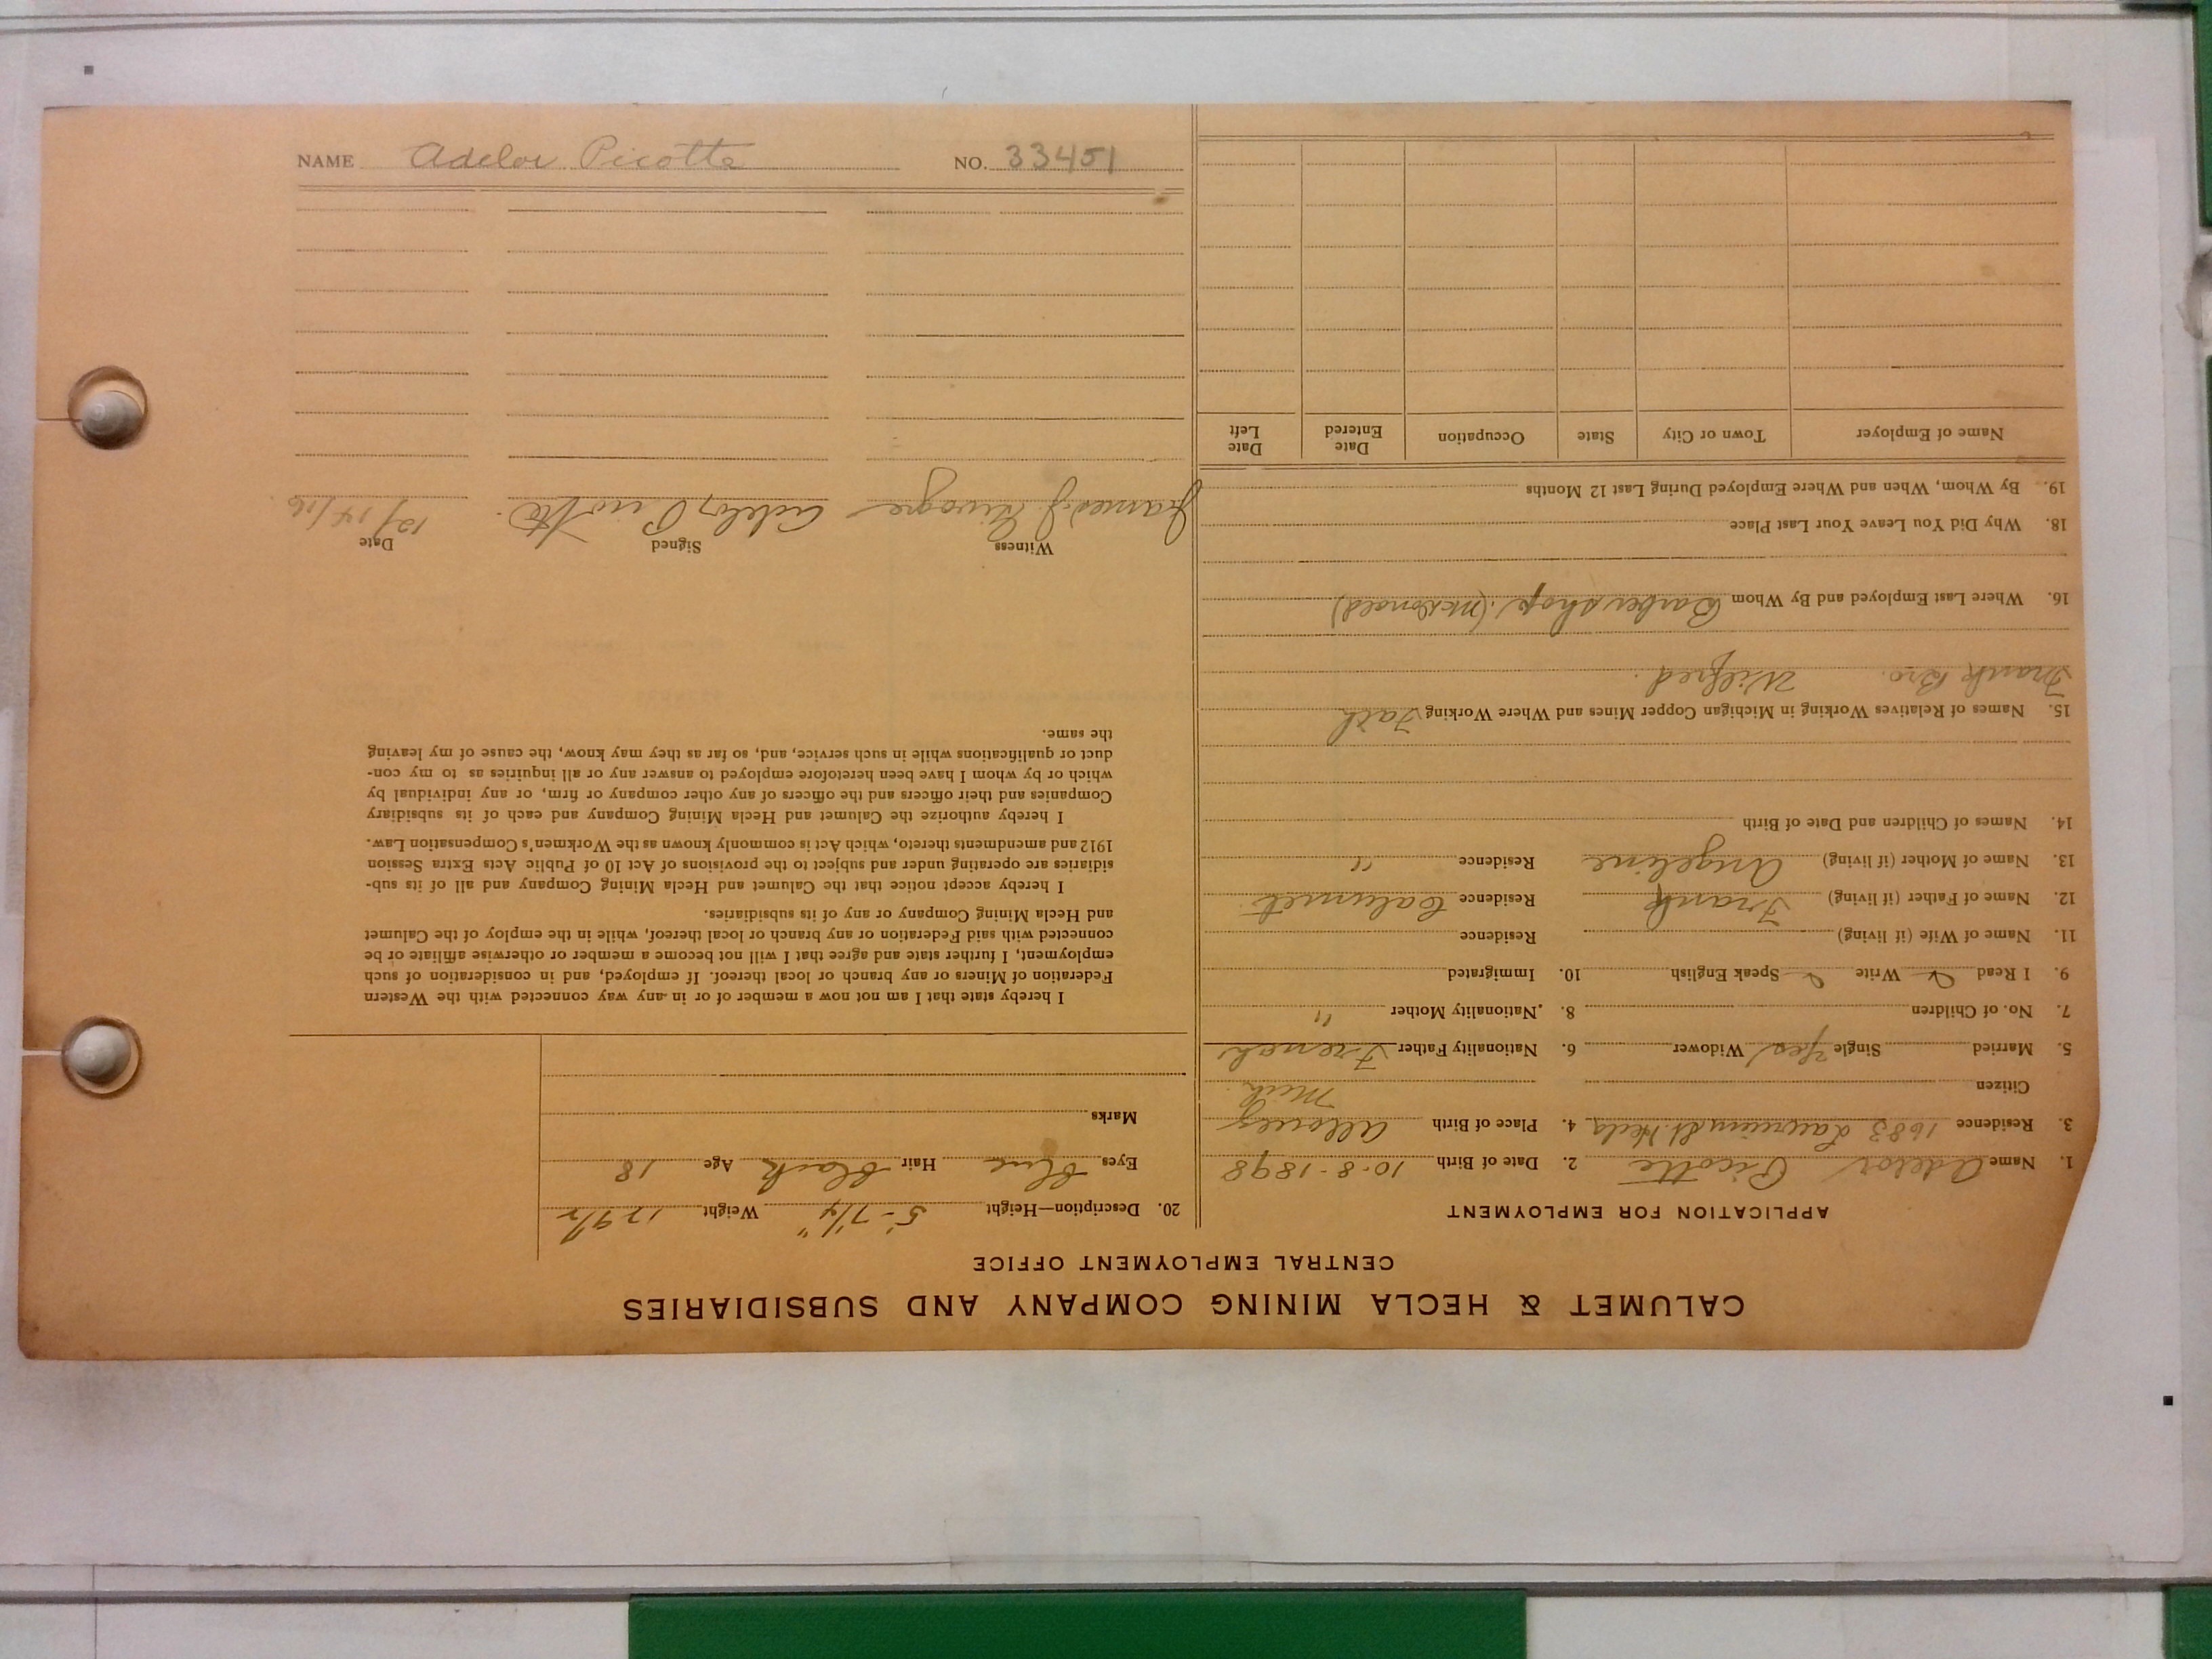 CALUMET & HECLA MINING COMPANY AND SUBSIDIARIES
CENTRAL EMPLOYMENT OFFICE
APPLICATION FOR EMPLOYMENT
1. Name Adelor Picotte 2. Date of Birth 10-8-1898
3. Residence 1683 St. Hecla 4. Place of Birth Allouez
Mich.
Citizen
5. Married Single Yes Widower 6. Nationality Father French
7. No. of Children 8. Nationality Mother "
9. I Read Write Speak English 10. Immigrated
11. Name of Wife (if living) Residence
12. Name of Father (if living) Frank Residence Calumet
13. Name of Mother (if living) Angeline Residence "
14. Names of Children and Date of Birth
15. Names of Relatives Working in Michigan Copper Mines and Where Working Fath
Frank Bro. Wilfred.
16. Where Last Employed and By Whom Barber shop. (McDonald)
18. Why Did You Leave Your Last Place
19. By Whom, When and Where Employed During Last 12 Months
Name of Employer Town or City State Occupation Date Entered Date Left
20. Description—Height 5'-7 1/4" Weight 129 1/2
Eyes Blue Hair Black Age 18
Marks
I hereby state that I am not now a member of or in any way connected with the Western
Federation of Miners or any branch or local thereof. If employed, and in consideration of such
employment, I further state and agree that I will not become a member or otherwise affiliate or be
connected with said Federation or any branch or local thereof, while in the employ of the Calumet
and Hecla Mining Company or any of its subsidiaries.
I hereby accept notice that the Calumet and Hecla Mining Company and all of its sub-
sidiaries are operating under and subject to the provisions of Act 10 of Public Acts Extra Session
1912 and amendments thereto, which Act is commonly known as the Workmen's Compensation Law.
I hereby authorize the Calumet and Hecla Mining Company and each of its subsidiary
Companies and their officers and the officers of any other company or firm, or any individual by
which or by whom I have been heretofore employed to answer any or all inquiries as to my con-
duct or qualifications while in such service, and, so far as they may know, the cause of my leaving
the same.
Witness Signed Date
James J. Adelor Picotte. 12/14/16
NAME Adelor Picotte NO. 33451